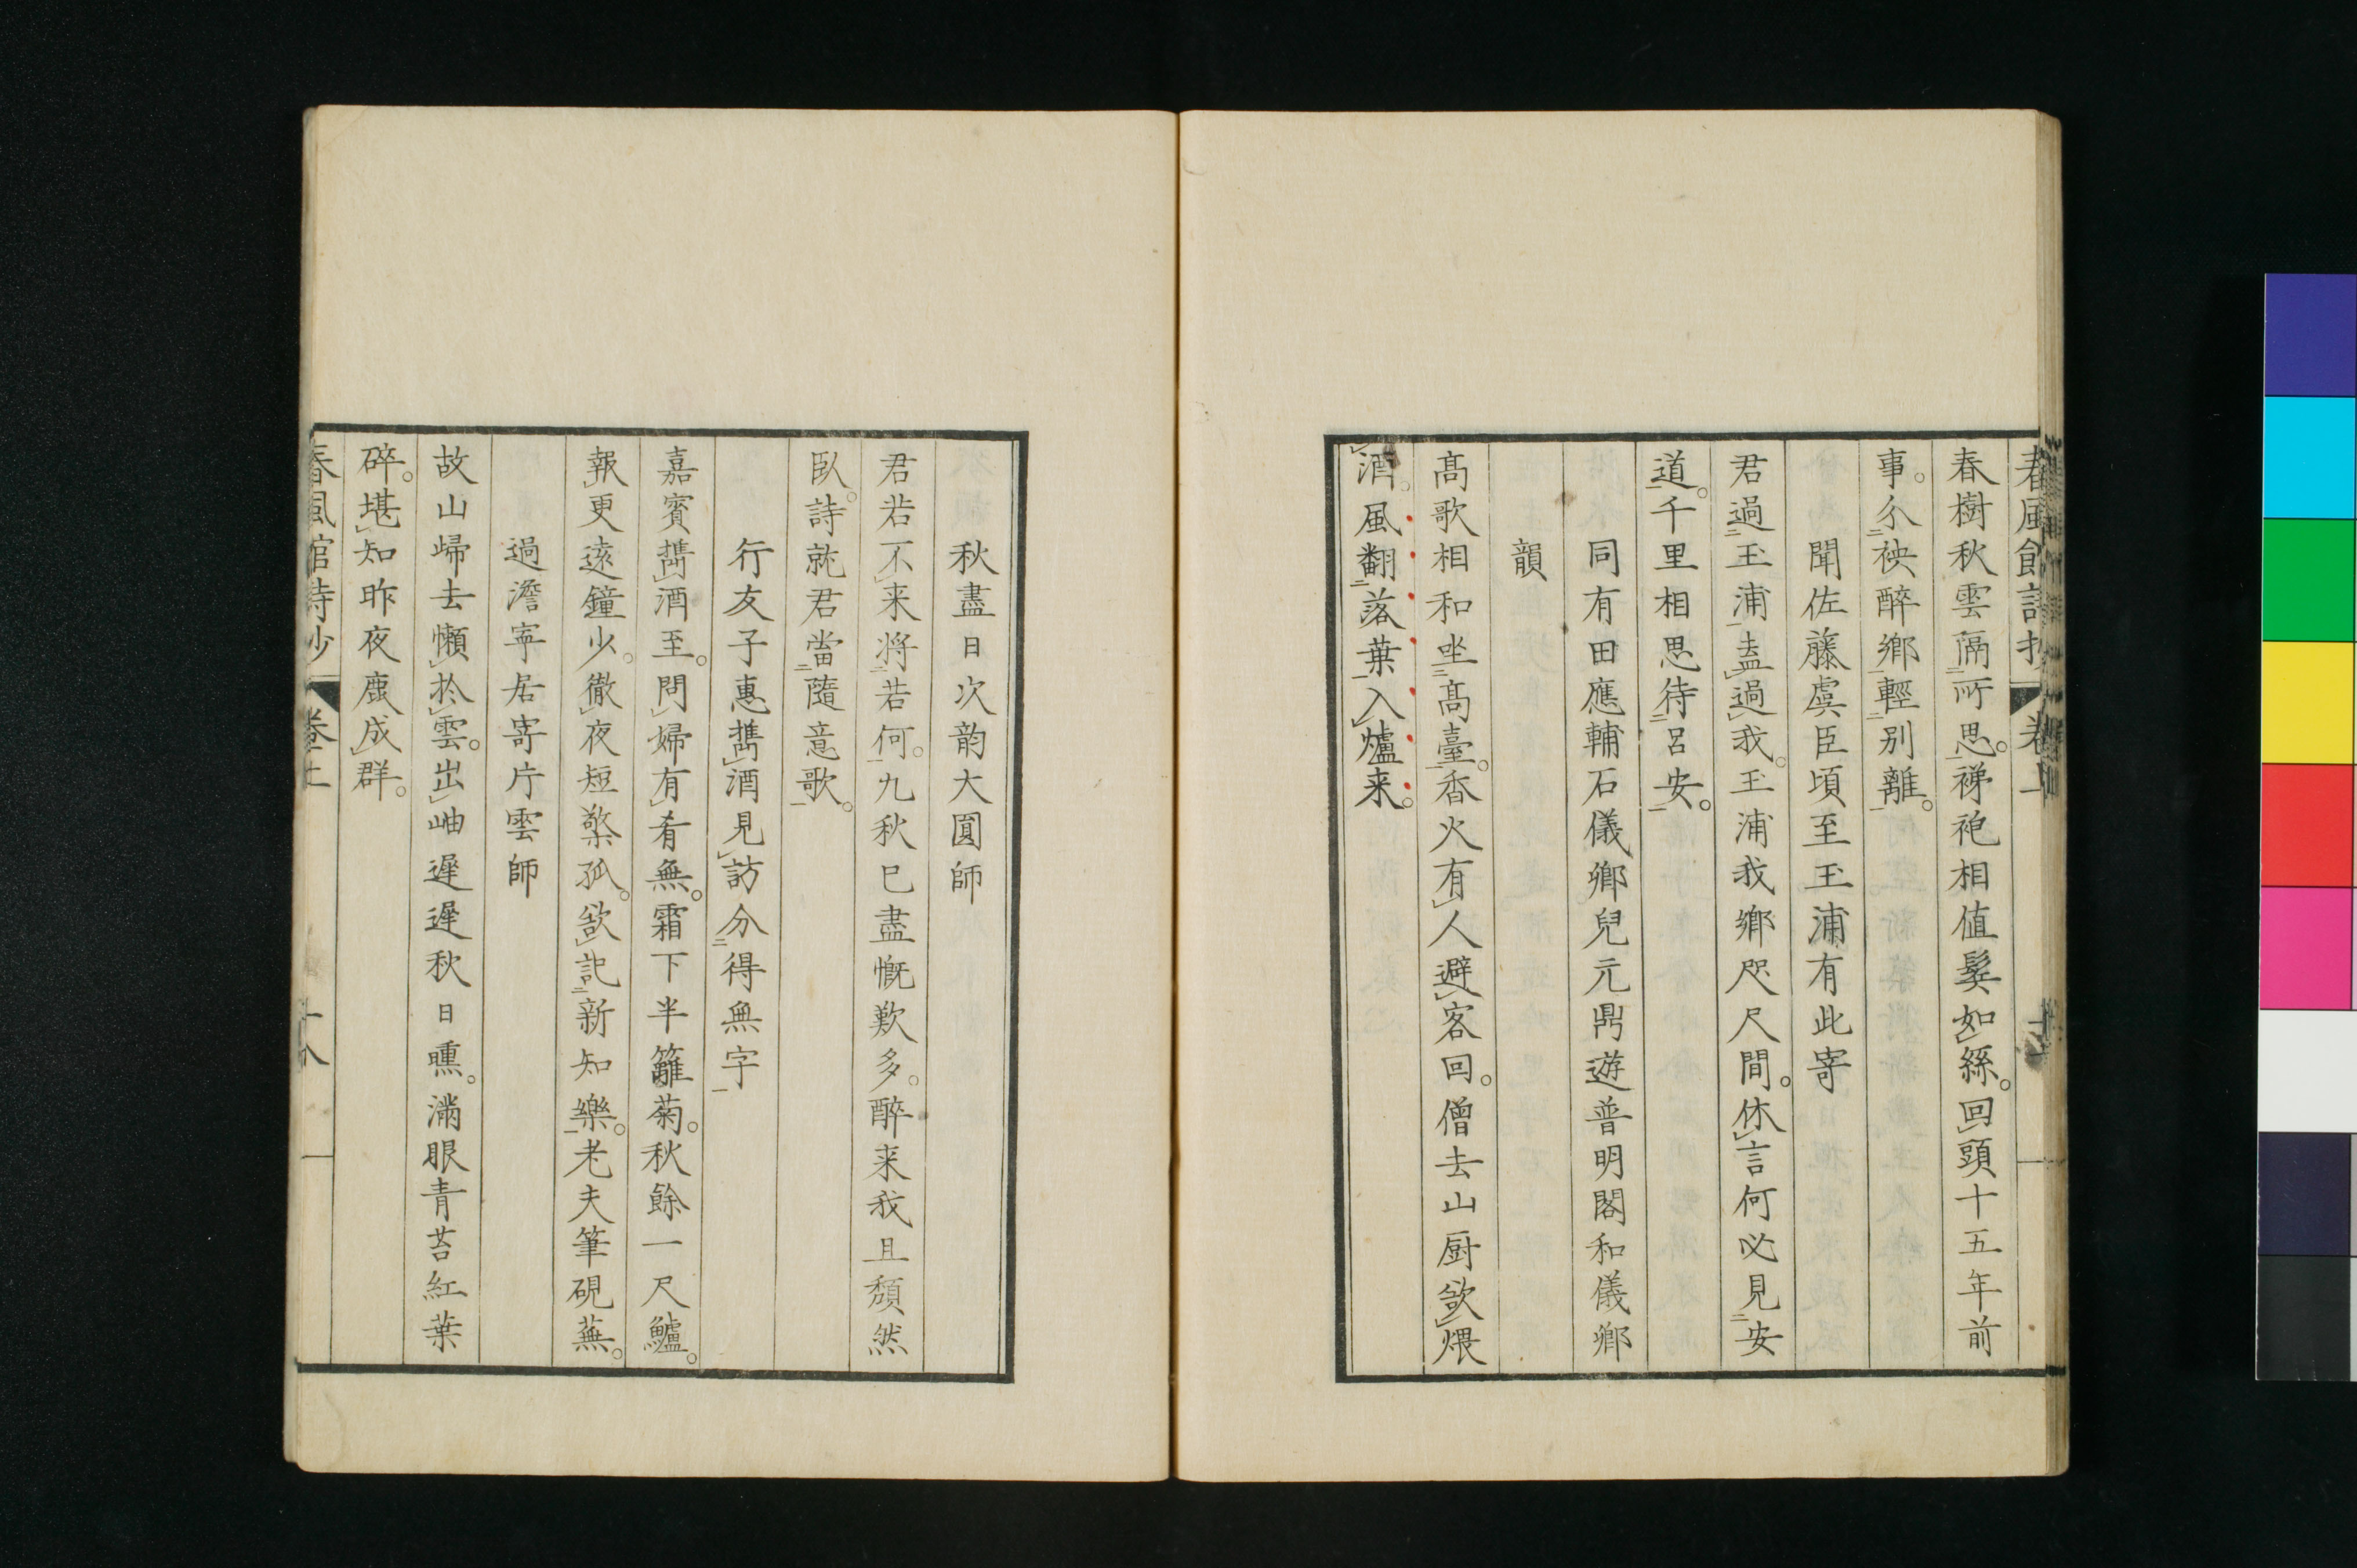 春樹秋雲隔所思。袮袍相値鬂如絲。回頭十五年前
事。分袂醉鄉輕別離。
聞佐藤虞臣頃至玉浦有此寄
君過玉浦盍過我。玉浦我鄉咫尺間。休言何必見安
道。千里相思待呂安。
同有田應輔石儀鄉兒元鼎遊普明閣和儀鄉
韻
髙歌相和坐髙臺。香火有人避客回。僧去山厨欲煨
酒。風翻落葉入爐来。
秋盡日次韵大圓師
君若不来将若何。九秋已盡慨歎多。醉来我且頽然
臥。詩就君當隨意歌。
行友子惠攜酒見訪分得無字
嘉賓攜酒至。問婦有肴無。霜下半籬菊。秋餘一尺鱸。
報更遠鐘少。徹夜短檠孤。欲記新知樂。老夫筆硯蕪。
過澹寧居寄片雲師
故山歸去懶於雲。出岫遲遲秋日曛。滿眼青苔紅葉
碎。堪知昨夜鹿成群。
春風館詩抄 卷上 十八